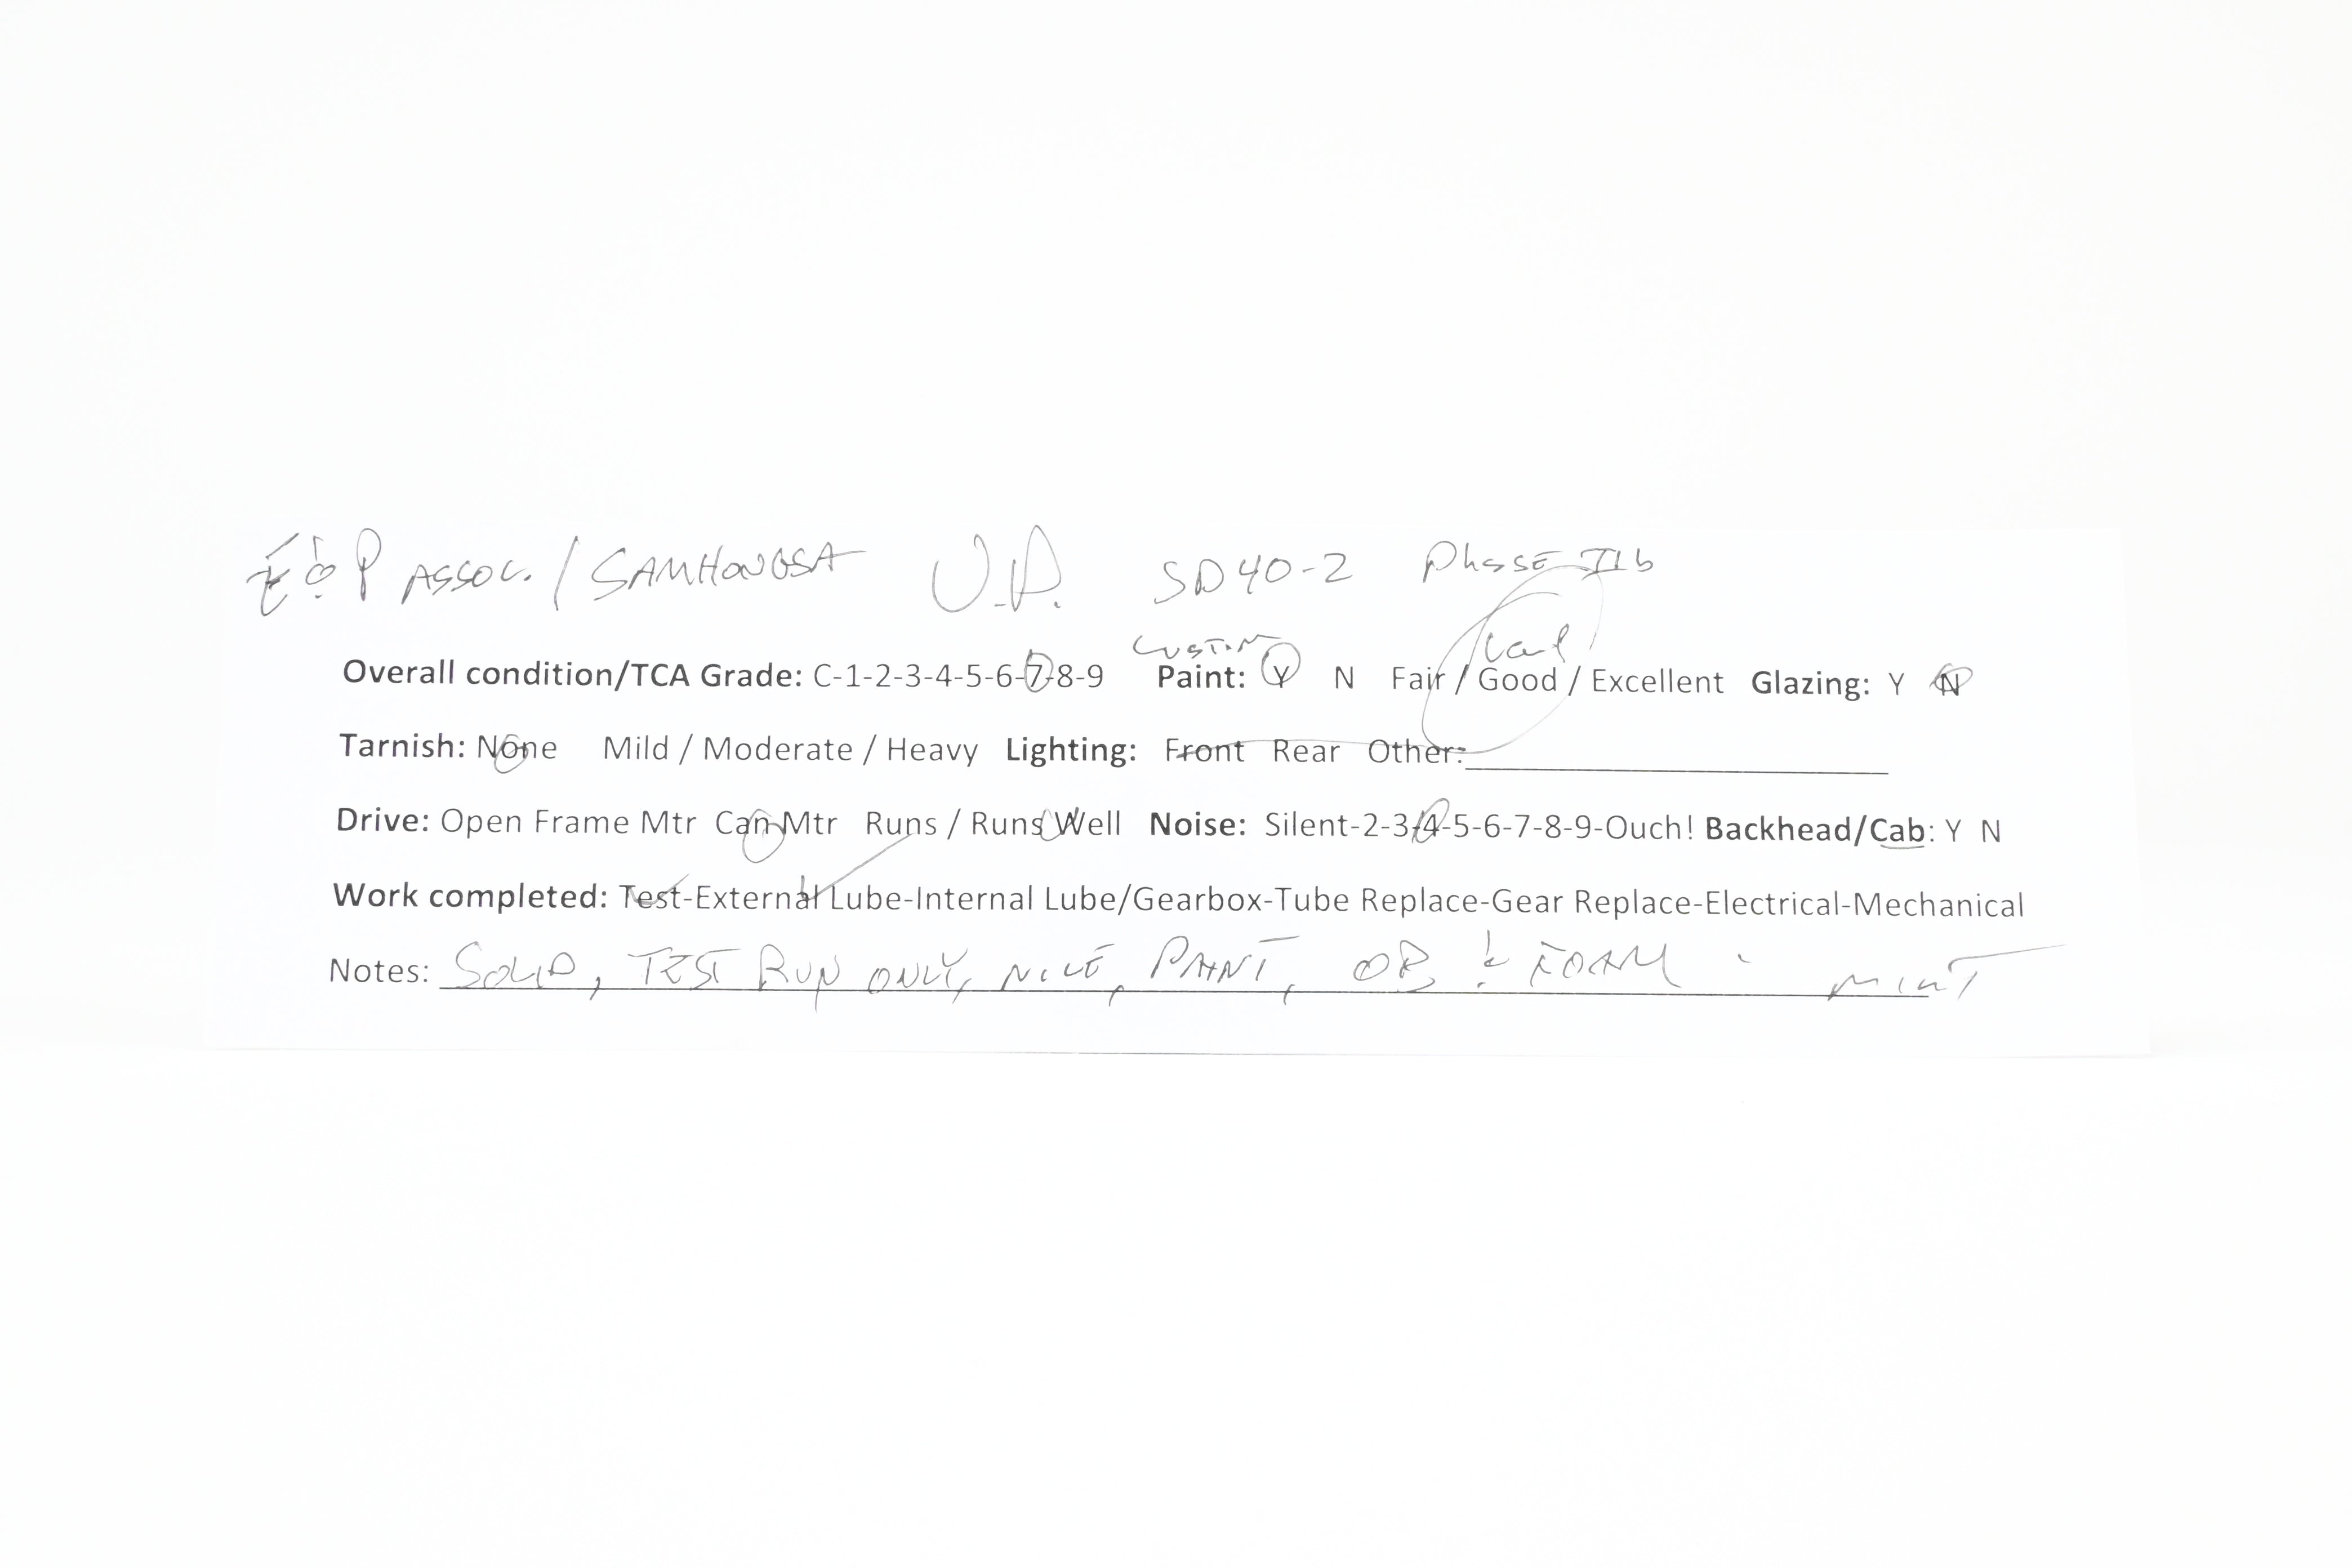 E & P ASSOC. / SAMHONGSA U.P. SD40-2 Phase IIb
Custom Very
Overall condition/TCA Grade: C-1-2-3-4-5-6-7-8-9 Paint: Y N Fair / Good / Excellent Glazing: Y N
Tarnish: None Mild / Moderate / Heavy Lighting: Front Rear Other:
Drive: Open Frame Mtr Can Mtr Runs / Runs Well Noise: Silent-2-3-4-5-6-7-8-9-Ouch! Backhead/Cab: Y N
Work completed: Test-External Lube-Internal Lube/Gearbox-Tube Replace-Gear Replace-Electrical-Mechanical
Notes: SOLID, TEST RUN ONLY, NICE, PAINT, OB & FOAM - MINT